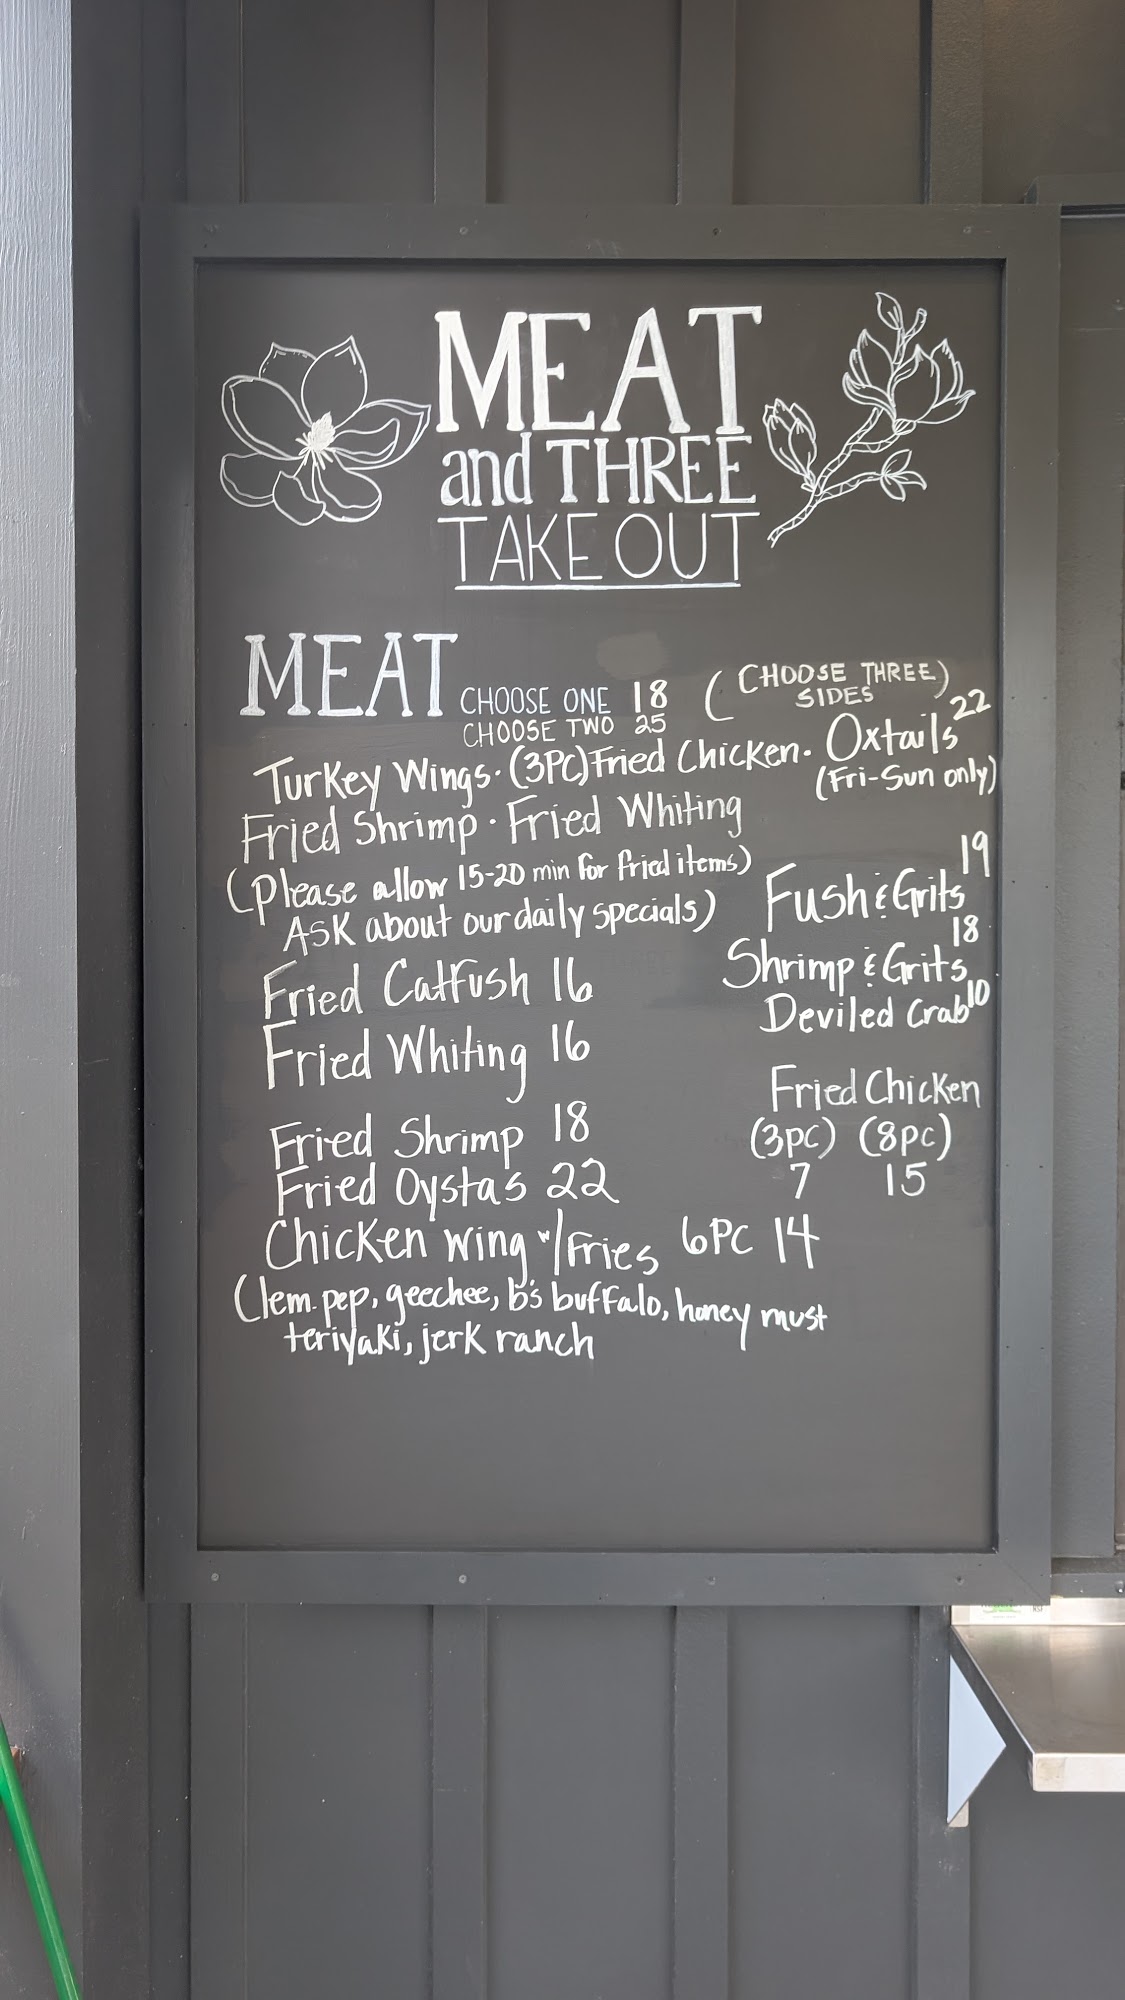 MEAT
and THREE
TAKE OUT
MEAT CHOOSE ONE 18 (CHOOSE THREE)
SIDES
CHOOSE TWO 25
Turkey Wings · (3PC) Fried Chicken · Oxtails 22
(Fri-Sun only)
Fried Shrimp · Fried Whiting
(Please allow 15-20 min for fried items)
ASK about our daily specials)
Fush & Grits 19
Shrimp & Grits 18
Deviled Crab 10
Fried Catfush 16
Fried Whiting 16
Fried Shrimp 18
Fried Oystas 22
Fried Chicken
(3pc) (8pc)
7 15
Chicken wing w/Fries 6PC 14
(lem. pep, geechee, b's buffalo, honey must
teriyaki, jerk ranch